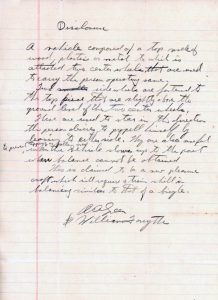 Disclosure
A vehicle composed of a top made of
wood, plastic or metal to which is
attached two center wheels that are used
to carry the person operating same.
Four side wheels are fastened to
the top that are slightly above the
ground level of the two center wheels.
These are used to stear in the direction
the person desires to propell himself by
leaning to either side. They are also useful
when the vehicle slows up to the point
when balance cannot be obtained
This is claimed to be a new pleasure
craft which will require a skill in
balancing similar to that of a bicycle.
William Forsyth